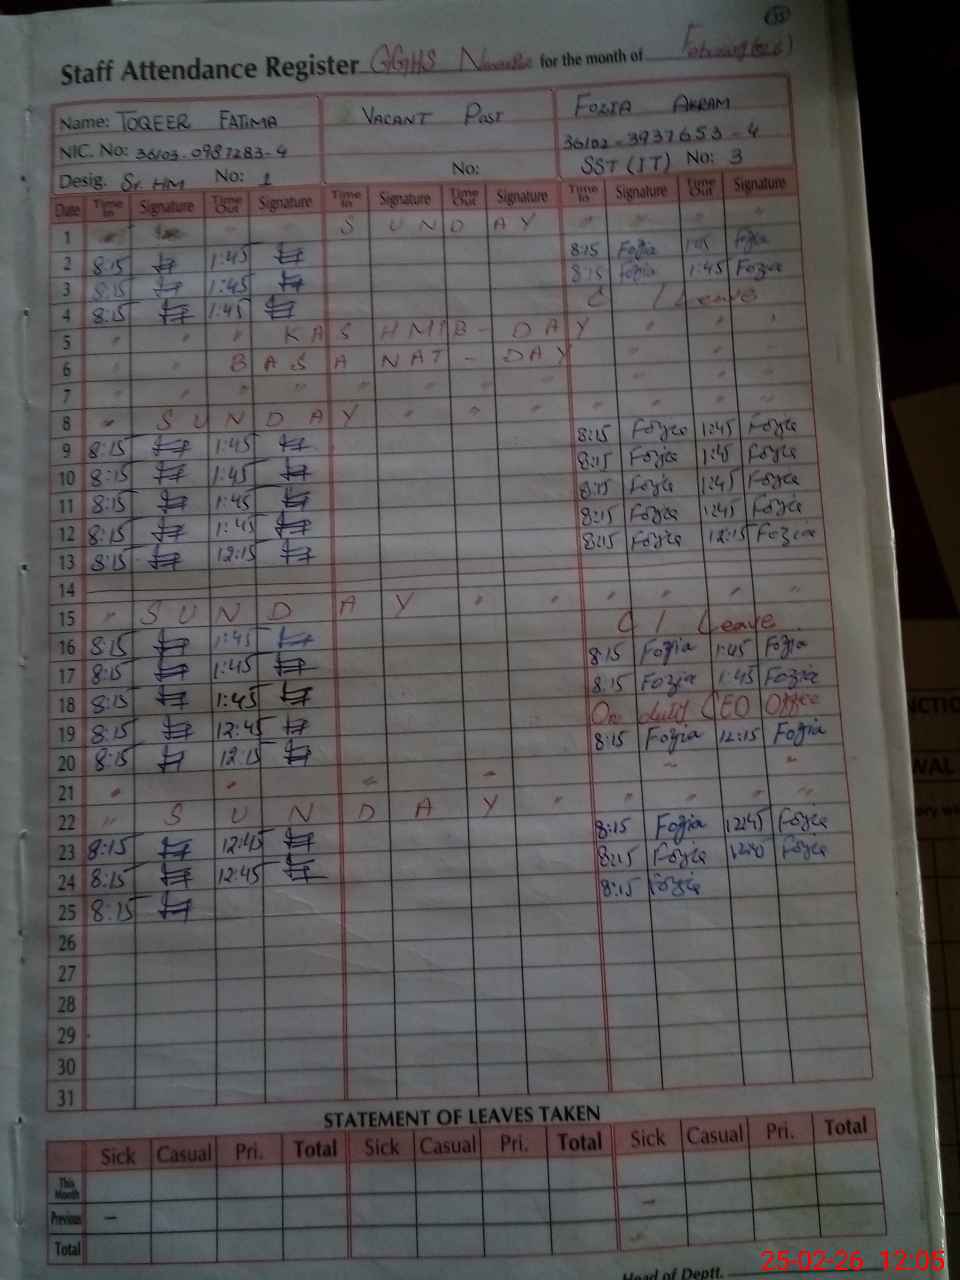 Staff Attendance Register GGHS for the month of
Name: TOQEER FATIMA VACANT Post FOZIA AKRAM
NIC. No: 36103-0987283-4 36102-3937653-4
Desig. Sr. HM No: 1 No: SST (IT) No: 3
Date Time In Signature Time Out Signature Time In Signature Time Out Signature Time In Signature Time Out Signature
1 SUNDAY
2 8:15 1:45 8:15 Fozia 1:45 Fozia
3 8:15 1:45 8:15 Fozia 1:45 Fozia
4 8:15 1:45 C / Leave
5 " " " KASHMIR-DAY " "
6 " " BASANAT-DAY " "
7 " " " " " " " " "
8 " SUNDAY " " " " " "
9 8:15 1:45 8:15 Fozia 1:45 Fozia
10 8:15 1:45 8:15 Fozia 1:45 Fozia
11 8:15 1:45 8:15 Fozia 1:45 Fozia
12 8:15 1:45 8:15 Fozia 1:45 Fozia
13 8:15 12:15 8:15 Fozia 12:15 Fozia
14
15 " SUNDAY " " " " " "
16 8:15 1:45 C / Leave
17 8:15 1:45 8:15 Fozia 1:45 Fozia
18 8:15 1:45 8:15 Fozia 1:45 Fozia
19 8:15 12:45 On duty CEO Office
20 8:15 12:15 8:15 Fozia 12:15 Fozia
21 " " " " " "
22 " SUNDAY " " " " "
23 8:15 12:45 8:15 Fozia 12:45 Fozia
24 8:15 12:45 8:15 Fozia Fozia
25 8:15 8:15 Fozia
26
27
28
29
30
31
STATEMENT OF LEAVES TAKEN
Sick Casual Pri. Total Sick Casual Pri. Total Sick Casual Pri. Total
This Month
Previous – –
Total
Head of Deptt.
25-02-26 12:05